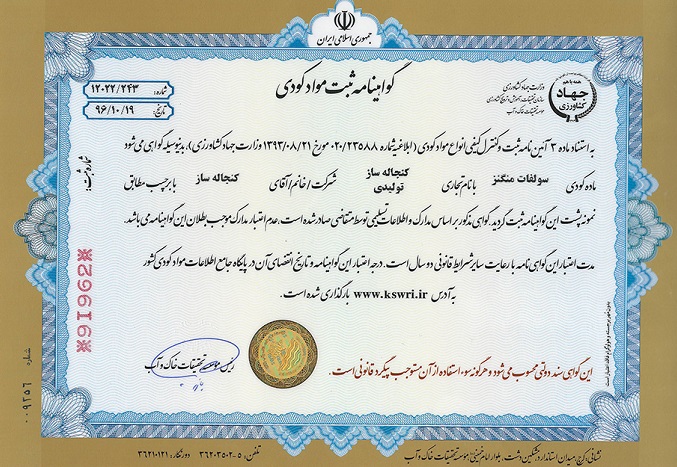 جمهوری اسلامی ایران
گواهینامه ثبت مواد کودی
شماره: ۱۲۰۲۲/۲۴۳
تاریخ: ۹۶/۱۰/۱۹
همه با هم
جهاد
کشاورزی
وزارت جهاد کشاورزی
سازمان تحقیقات، آموزش و ترویج کشاورزی
موسسه تحقیقات خاک و آب
به استناد ماده ۳ آئین نامه ثبت و کنترل کیفی انواع مواد کودی (ابلاغیه شماره ۰۲۰/۲۳۵۸۸ مورخ ۱۳۹۳/۰۸/۲۱ وزارت جهاد کشاورزی)، بدینوسیله گواهی می شود
ماده کودی سولفات منگنز با نام تجاری کنجاله ساز تولیدی شرکت/خانم/آقای کنجاله ساز با برچسب مطابق
نمونه پشت این گواهینامه ثبت گردید. گواهی مذکور بر اساس مدارک و اطلاعات تسلیمی توسط متقاضی صادر شده است. عدم اعتبار مدارک موجب بطلان این گواهینامه می باشد.
مدت اعتبار این گواهی نامه با رعایت سایر شرایط قانونی دو سال است. درجه اعتبار این گواهینامه و تاریخ انقضای آن در پایگاه جامع اطلاعات مواد کودی کشور
به آدرس www.kswri.ir بارگذاری شده است.
شماره ثبت:
※91962※
رئیس موسسه تحقیقات خاک و آب
این گواهی سند دولتی محسوب می شود و هرگونه سوء استفاده از آن مستوجب پیگرد قانونی است.
بدون مهر برجسته و هولوگرام فاقد اعتبار است
شماره ۰۰۹۲۵۶
نشانی: کرج، میدان استاندارد، مشکین دشت، بلوار امام خمینی، موسسه تحقیقات خاک و آب
تلفن: ۵-۳۶۲۰۳۵۰۲ دورنگار: ۳۶۲۱۰۱۲۱